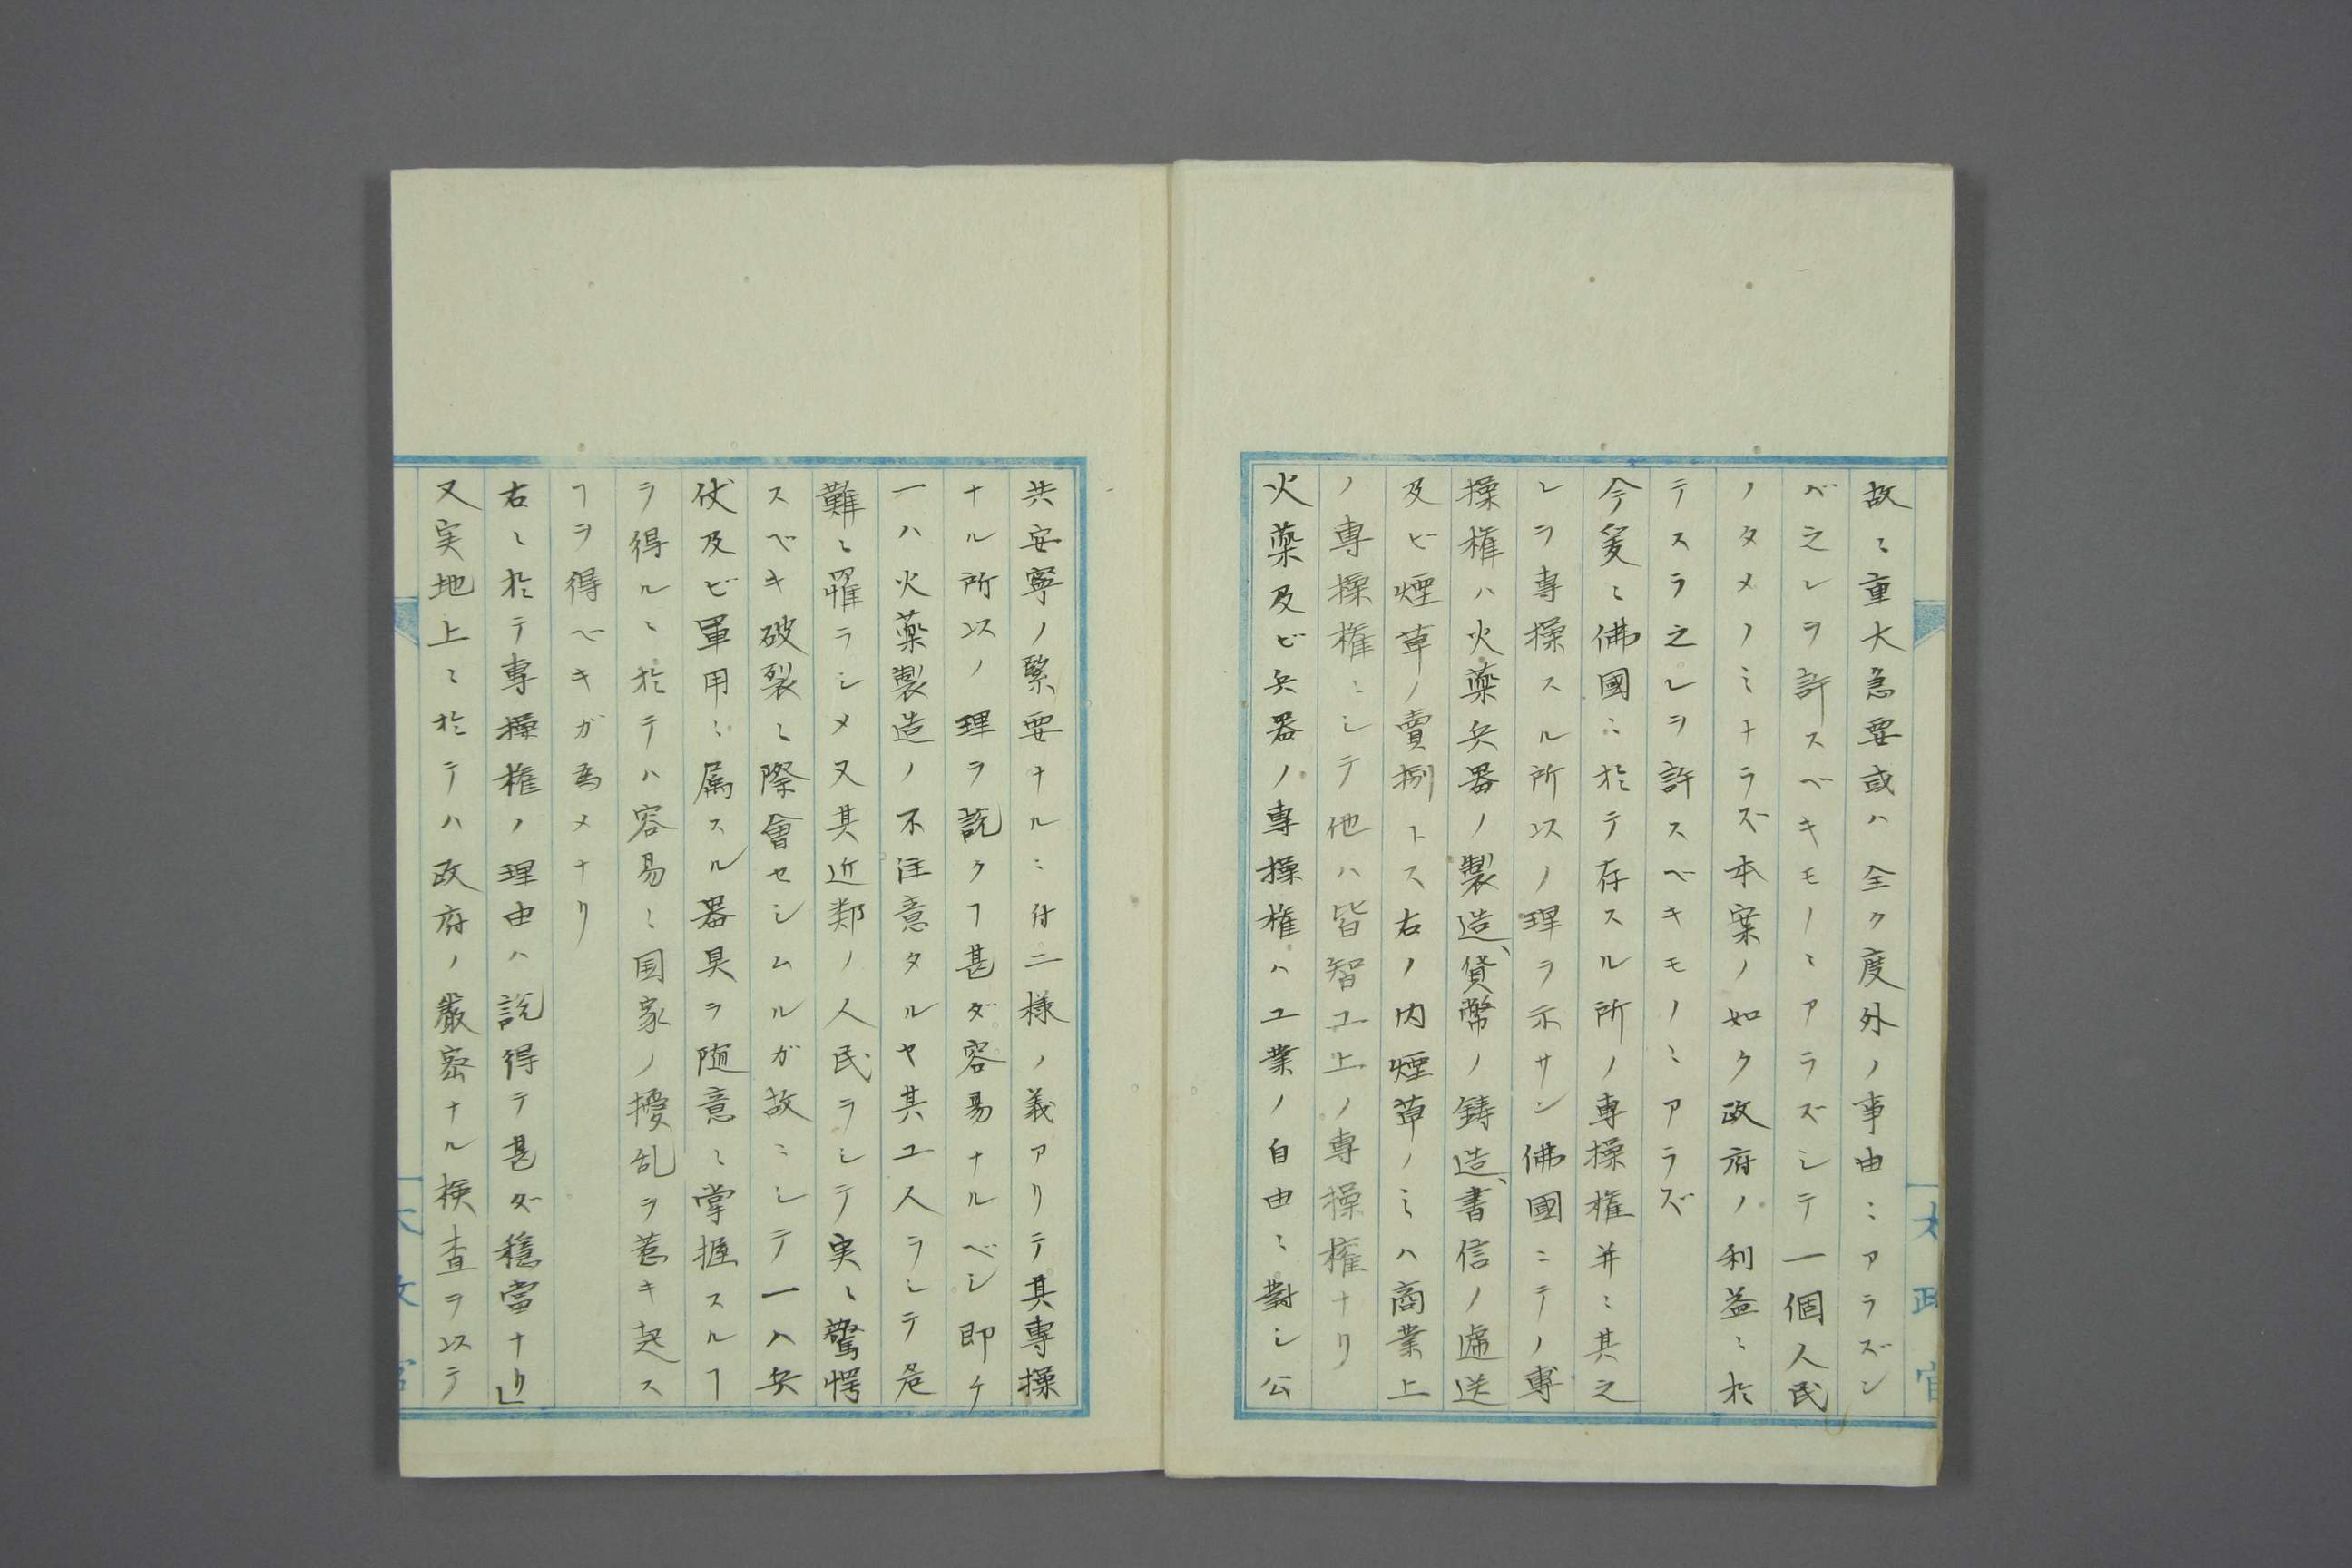 故ニ重大急要或ハ全ク度外ノ事由ニアラズン
バ之レヲ許スベキモノニアラズシテ一個人民
ノタメノミナラズ本案ノ如ク政府ノ利益ニ於
テスラ之レヲ許スベキモノニアラズ
今爰ニ佛國ニ於テ存スル所ノ専操権并ニ其之
レヲ専操スル所以ノ理ヲ示サン佛國ニテノ專
操権ハ火薬兵器ノ製造、貨幣ノ鋳造、書信ノ逓送
及ビ煙草ノ賣捌トス右ノ内煙草ノミハ商業上
ノ専操権ニシテ他ハ皆智工上ノ専操権ナリ
火薬及ビ兵器ノ専操権ハ工業ノ自由ニ對シ公
共安寧ノ緊要ナルニ付二様ノ義アリテ其專操
ナル所以ノ理ヲ説クヿ甚ダ容易ナルベシ即チ
一ハ火薬製造ノ不注意タルヤ其工人ヲシテ危
難ニ罹ラシメ又其近鄰ノ人民ヲシテ実ニ驚愕
スベキ破裂ニ際會セシムルガ故ニシテ一ハ兵
仗及ビ軍用ニ属スル器具ヲ随意ニ掌握スルヿ
ヲ得ルニ於テハ容易ニ国家ノ擾乱ヲ惹キ起ス
ヿヲ得ベキガ為メナリ
右ニ於テ専操権ノ理由ハ説得テ甚ダ穏當ナリ」
又実地上ニ於テハ政府ノ嚴密ナル検査ヲ以テ
太政官